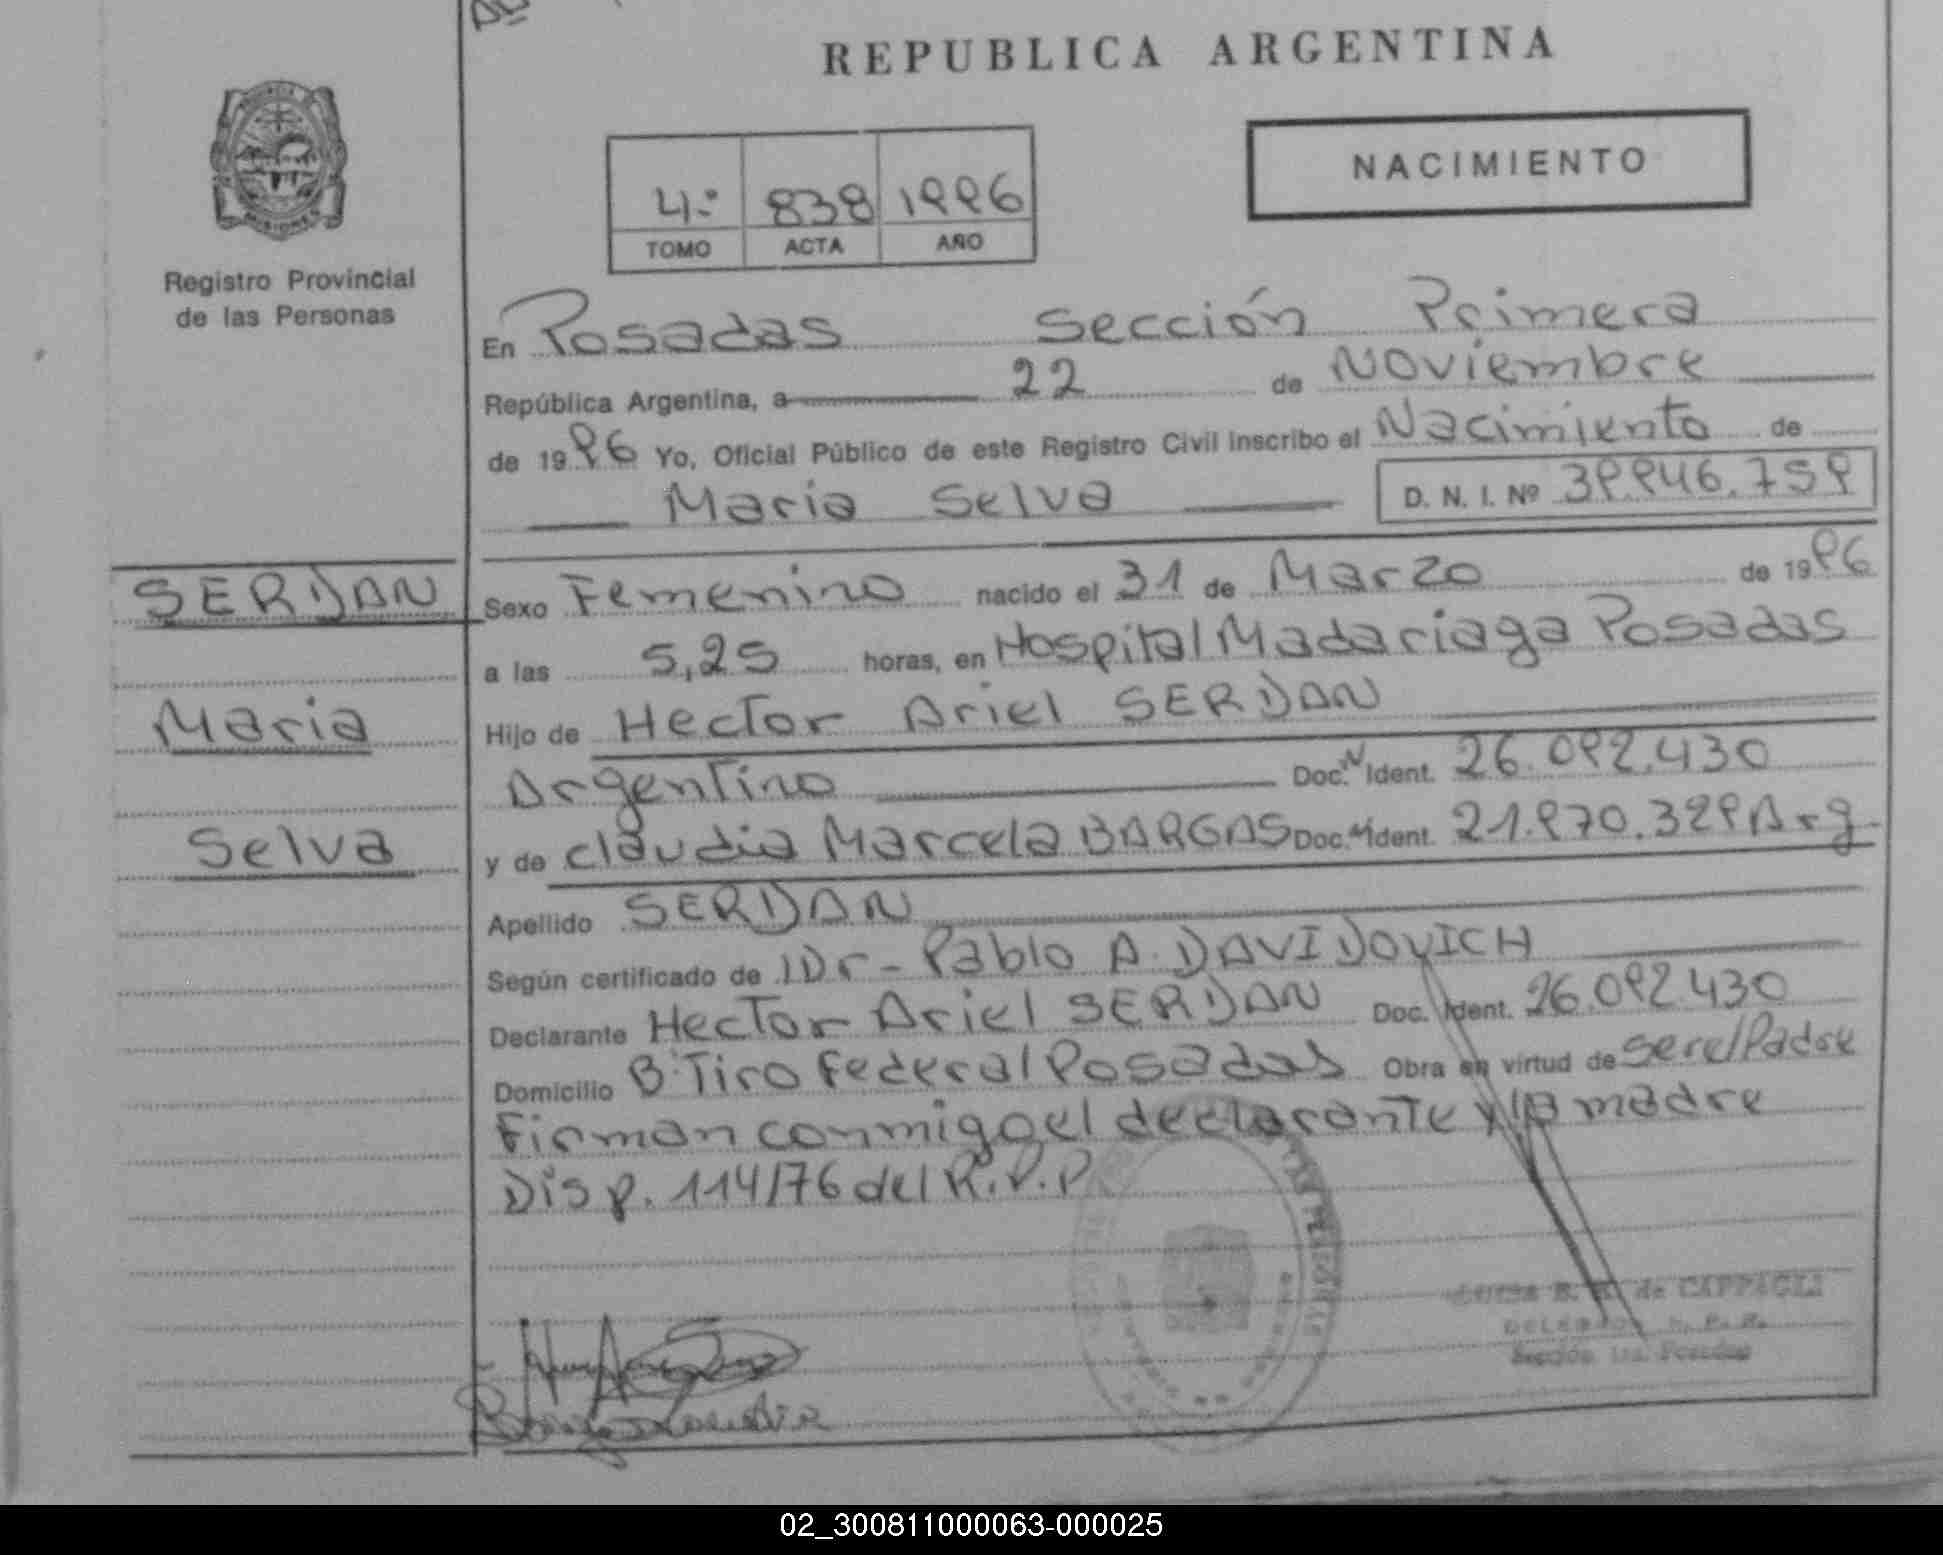 REPUBLICA ARGENTINA
NACIMIENTO
4º 838 1996
TOMO ACTA AÑO
Registro Provincial
de las Personas
En Posadas Sección Primera
República Argentina, a 22 de Noviembre
de 1996 Yo, Oficial Público de este Registro Civil inscribo el Nacimiento de
Maria Selva D. N. I. Nº 39.946.759
SERDAN
Maria
Selva
Sexo Femenino nacido el 31 de Marzo de 1996
a las 5,25 horas, en Hospital Madariaga Posadas
Hijo de Hector Ariel SERDAN
Argentino Doc. N Ident. 26.092.430
y de claudia Marcela BARGAS Doc. N Ident. 21.970.329 Arg
Apellido SERDAN
Según certificado de Dr - Pablo A. DAVIDOVICH
Declarante Hector Ariel SERDAN Doc. Ident. 26.092.430
Domicilio B. Tiro Federal Posadas Obra en virtud de ser el Padre
Firman conmigo el declarante y la madre
Disp. 114/76 del R.P.P
de CAPPAGLI
Sección 1ra. Posadas
02_300811000063-000025